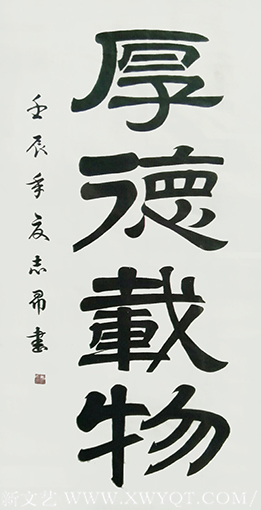 厚徳載物
壬辰年夏志書
新文艺/WWW.XWYQT.COM/